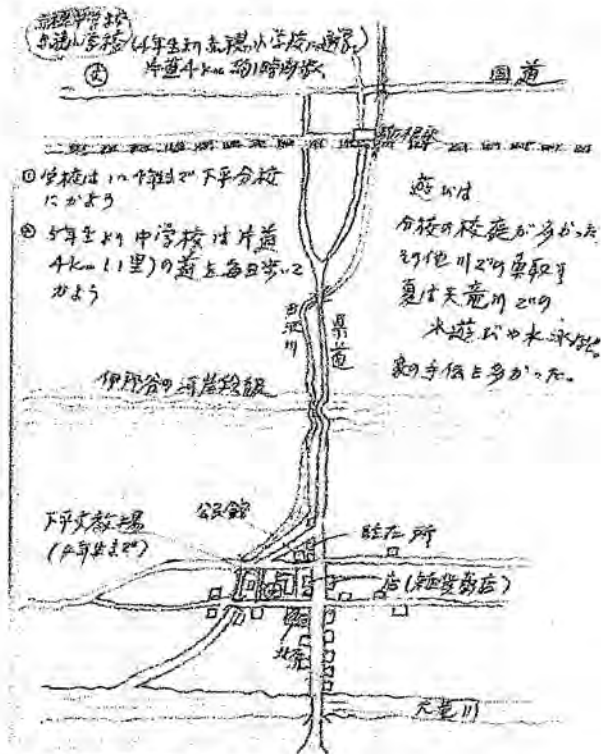 赤穂中学校
赤穂小学校
(4年生より赤穂小学校に通学)
片道4km 約1時間歩く
国道
① 学校は1〜4年生まで下平分校
にかよう
② 5年生より中学校は片道
4km(1里)の道を毎日歩いて
かよう
遊びは
分校の校庭が多かった
その他川での魚取り
夏は天竜川での
水遊びや水泳など。
家の手伝も多かった。
県道
伊那谷の河岸段丘
公民館
下平分教場
(4年生まで)
駐在所
店(雑貨商店)
天竜川